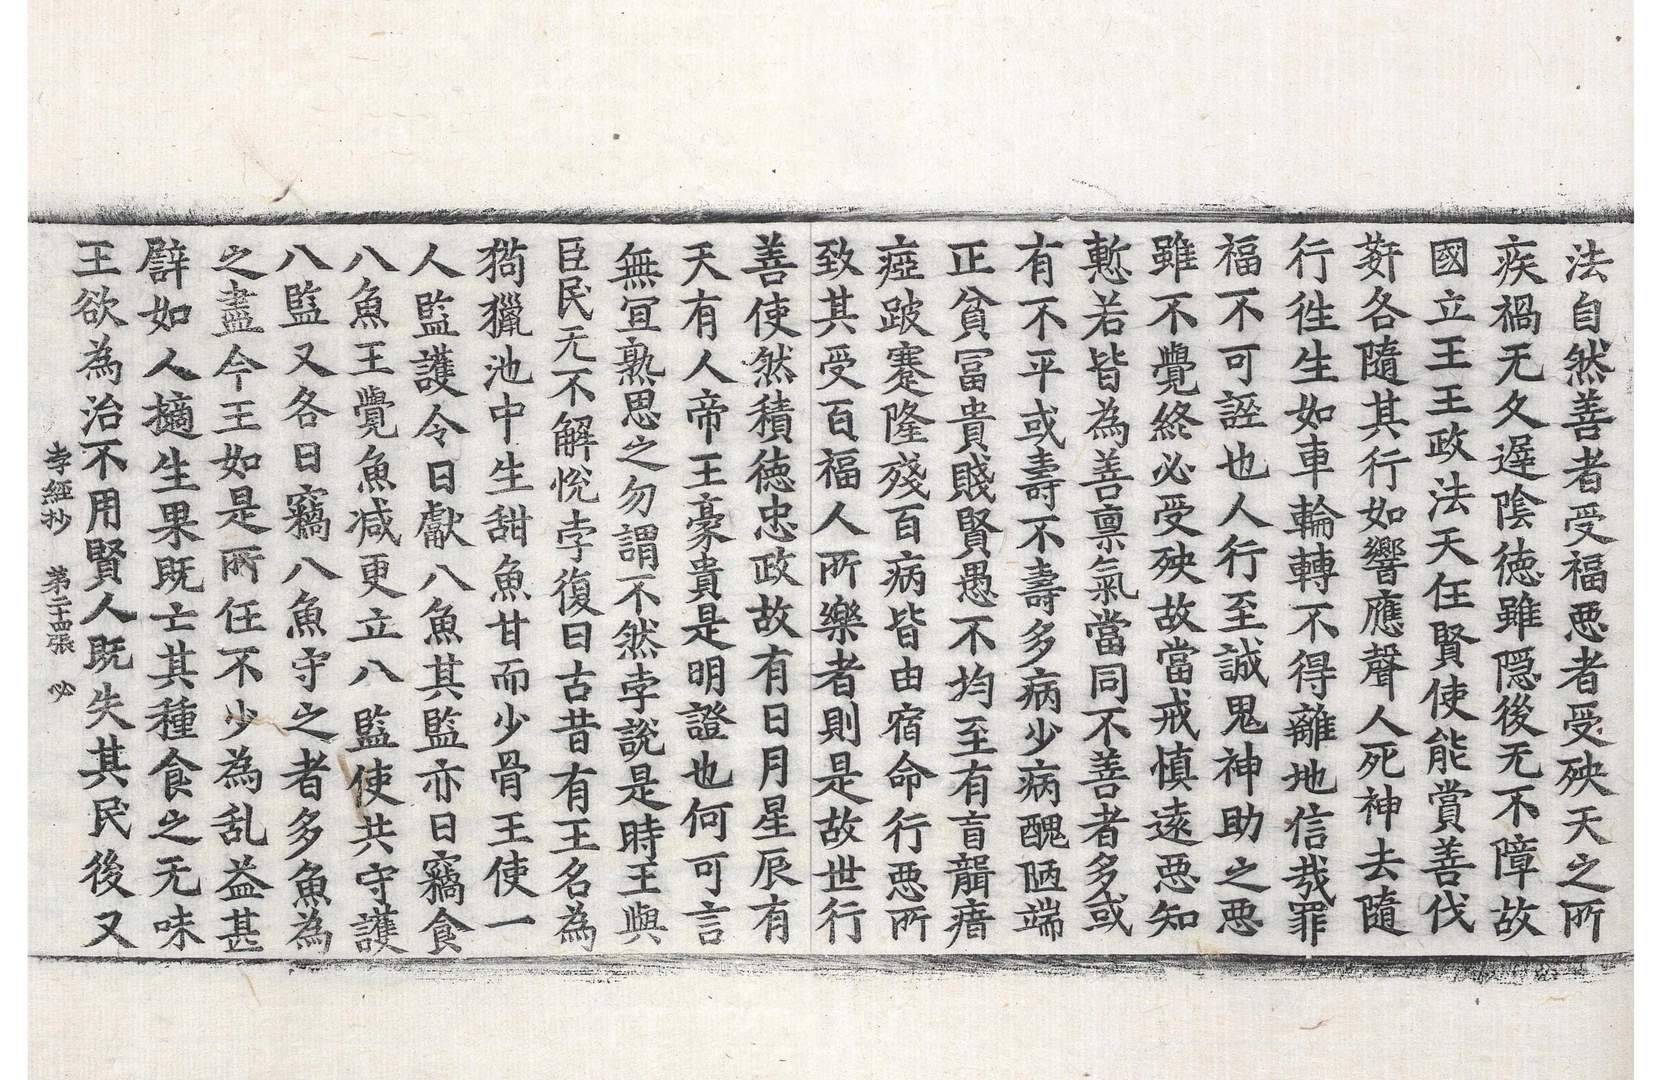 法自然善者受福恶者受殃天之所
疾禍无久遅陰徳雖隠後无不障故
國立王王政法天任賢使能賞善伐
姧各隨其行如響應聲人死神去隨
行徃生如車輪轉不得離地信哉罪
福不可誣也人行至誠鬼神助之恶
雖不覺終必受殃故當戒慎遠恶知
慙若皆為善禀氣當同不善者多或
有不平或壽不壽多病少病醜陋端
正貧冨貴賤賢愚不均至有盲聾瘖
瘂跛蹇癃殘百病皆由宿命行恶所
致其受百福人所樂者則是故世行
善使然積徳忠政故有日月星辰有
天有人帝王豪貴是明證也何可言
無宜熟思之勿謂不然孛説是時王與
臣民无不解恱孛復曰古昔有王名為
猗獵池中生甜魚甘而少骨王使一
人監護令日獻八魚其監亦日竊食
八魚王覺魚减更立八監使共守護
八監又各日竊八魚守之者多魚為
之盡今王如是所任不少為乱益甚
譬如人擿生果既亡其種食之无味
王欲為治不用賢人既失其民後又
孛經抄 第二十四張 必